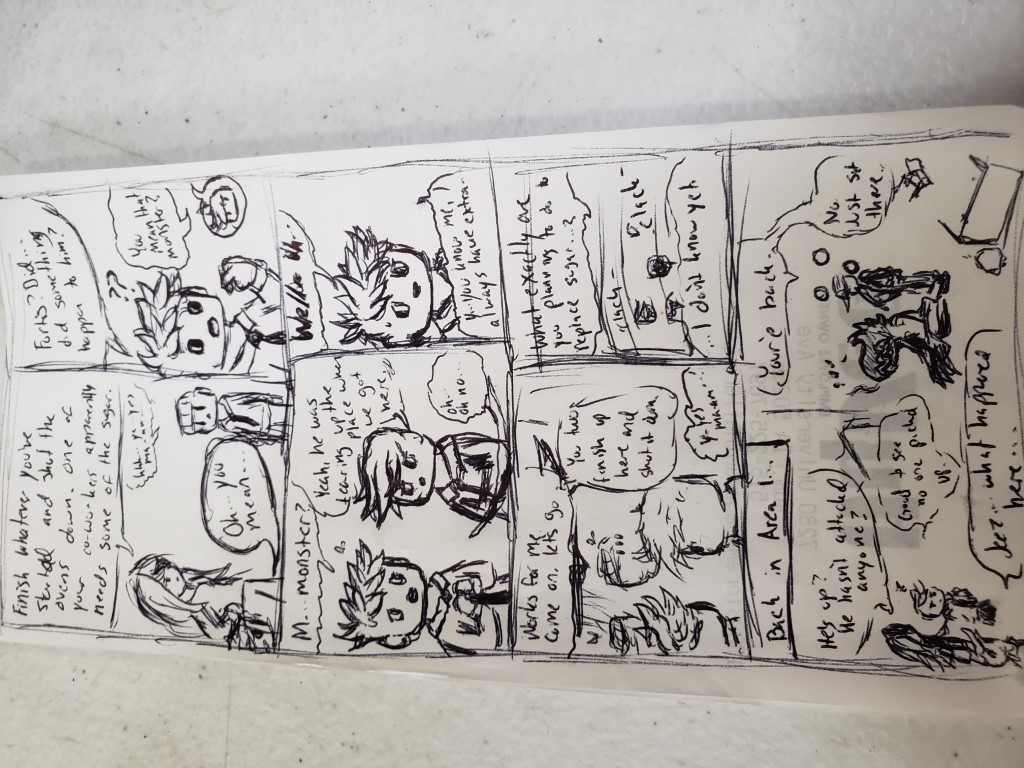 Finish whatever you've
started and shut the
ovens down. One of
your co-workers apparently
needs some of the sugar.
uhh... ye-yes
ma-am...
Oh... you
mean...
Fortis? Did...
did something
happen to him?
??
You
mean that
monster?
M... monster?
Yeah, he was
tearing up the
place when
we got
here.
oh...
oh no...
Well... uh..
Y-you know me, I
always have extra..
Works for me
come on, let's go
...
You two
finish up
here and
shut it down.
y-yes
ma-am...
What exactly are
you planning to do to
replace sugar...?
-clack-
-clack-
...I don't know yet.
Back in Area 1...
He's up?
He hasn't attacked
anyone?
Good to see
no one picked
up.
Jeez... what happened
here...
You're back.
No.
Just sat
there.
7280 University Ave
EMPLOYEE OWNED